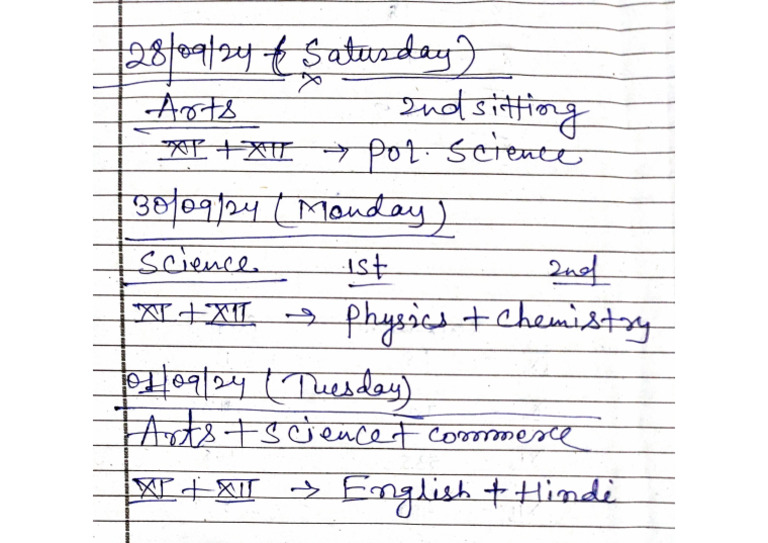 28/09/24 (Saturday)
Arts 2nd sitting
XI + XII → Pol. Science
30/09/24 (Monday)
Science 1st 2nd
XI + XII → Physics + Chemistry
01/09/24 (Tuesday)
Arts + Science + Commerce
XI + XII → English + Hindi